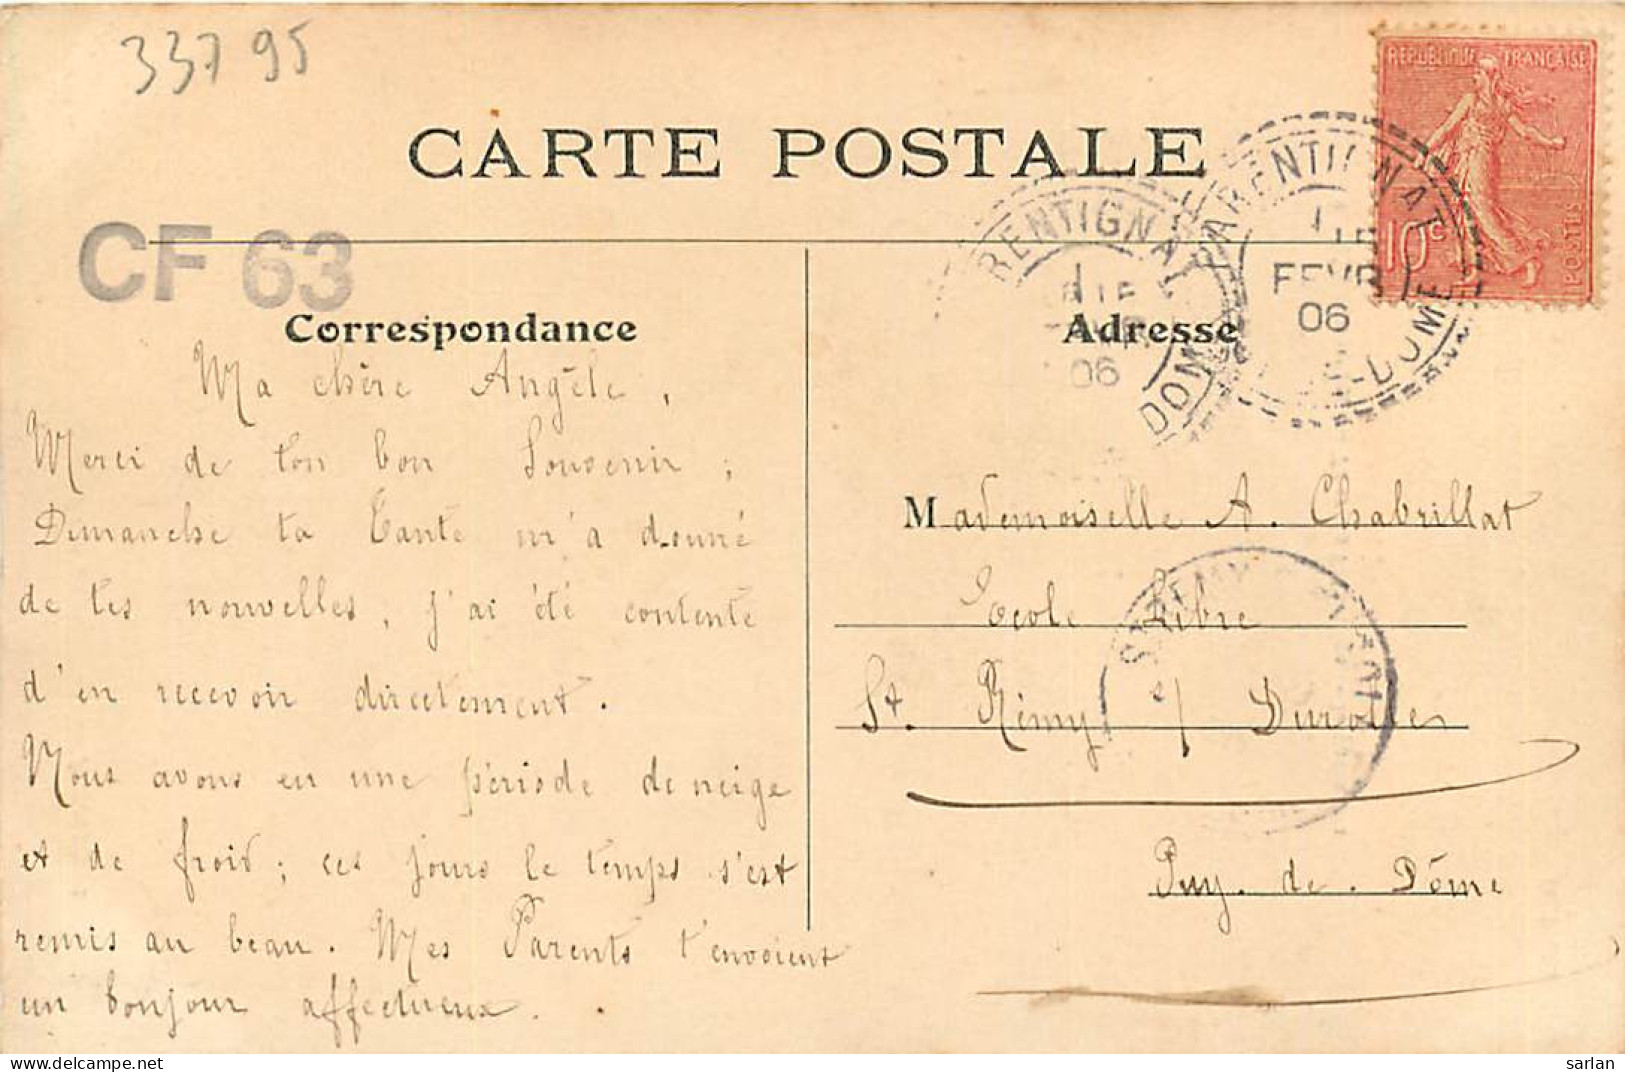 33795
REPUBLIQUE FRANCAISE
10c
POSTES
CARTE POSTALE
PARENTIGNAT
FEVR
06
DOME
RENTIGNAT
06
DOM
CF 63
Correspondance
Adresse
Ma chère Angèle,
Merci de ton bon souvenir ;
Dimanche ta Tante m'a donné
de tes nouvelles, j'ai été contente
d'en recevoir directement.
Nous avons eu une période de neige
et de froid ; ces jours le temps s'est
remis au beau. Mes Parents t'envoient
un bonjour affectueux.
Mademoiselle A. Chabrillat
Ecole Libre
St. Rémy s/ Durolle
Puy-de-Dôme
sarlan